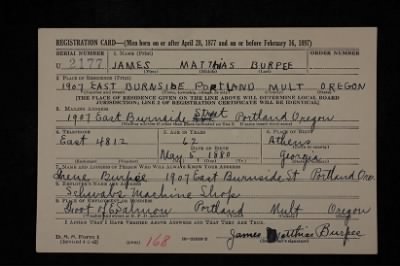 REGISTRATION CARD—(Men born on or after April 28, 1877 and on or before February 16, 1897)
SERIAL NUMBER 1. NAME (Print) ORDER NUMBER
U 2177 JAMES MATTHIAS BURPEE
(First) (Middle) (Last)
2. PLACE OF RESIDENCE (Print)
1907 EAST BURNSIDE PORTLAND MULT OREGON
[THE PLACE OF RESIDENCE GIVEN ON THE LINE ABOVE WILL DETERMINE LOCAL BOARD
JURISDICTION; LINE 2 OF REGISTRATION CERTIFICATE WILL BE IDENTICAL]
3. MAILING ADDRESS
1907 East Burnside Street Portland Oregon
4. TELEPHONE 5. AGE IN YEARS 6. PLACE OF BIRTH
East 4812 62 Athens
DATE OF BIRTH
May 5 1880 Georgia
7. NAME AND ADDRESS OF PERSON WHO WILL ALWAYS KNOW YOUR ADDRESS
Irene Burpee 1907 East Burnside St Portland Ore
8. EMPLOYER'S NAME AND ADDRESS
Schwabs Machine Shop
9. PLACE OF EMPLOYMENT OR BUSINESS
Foot of E Salmon Portland Mult Oregon
I AFFIRM THAT I HAVE VERIFIED ABOVE ANSWERS AND THAT THEY ARE TRUE.
D. S. S. Form 1
168 James Matthias Burpee
(Registrant's signature)